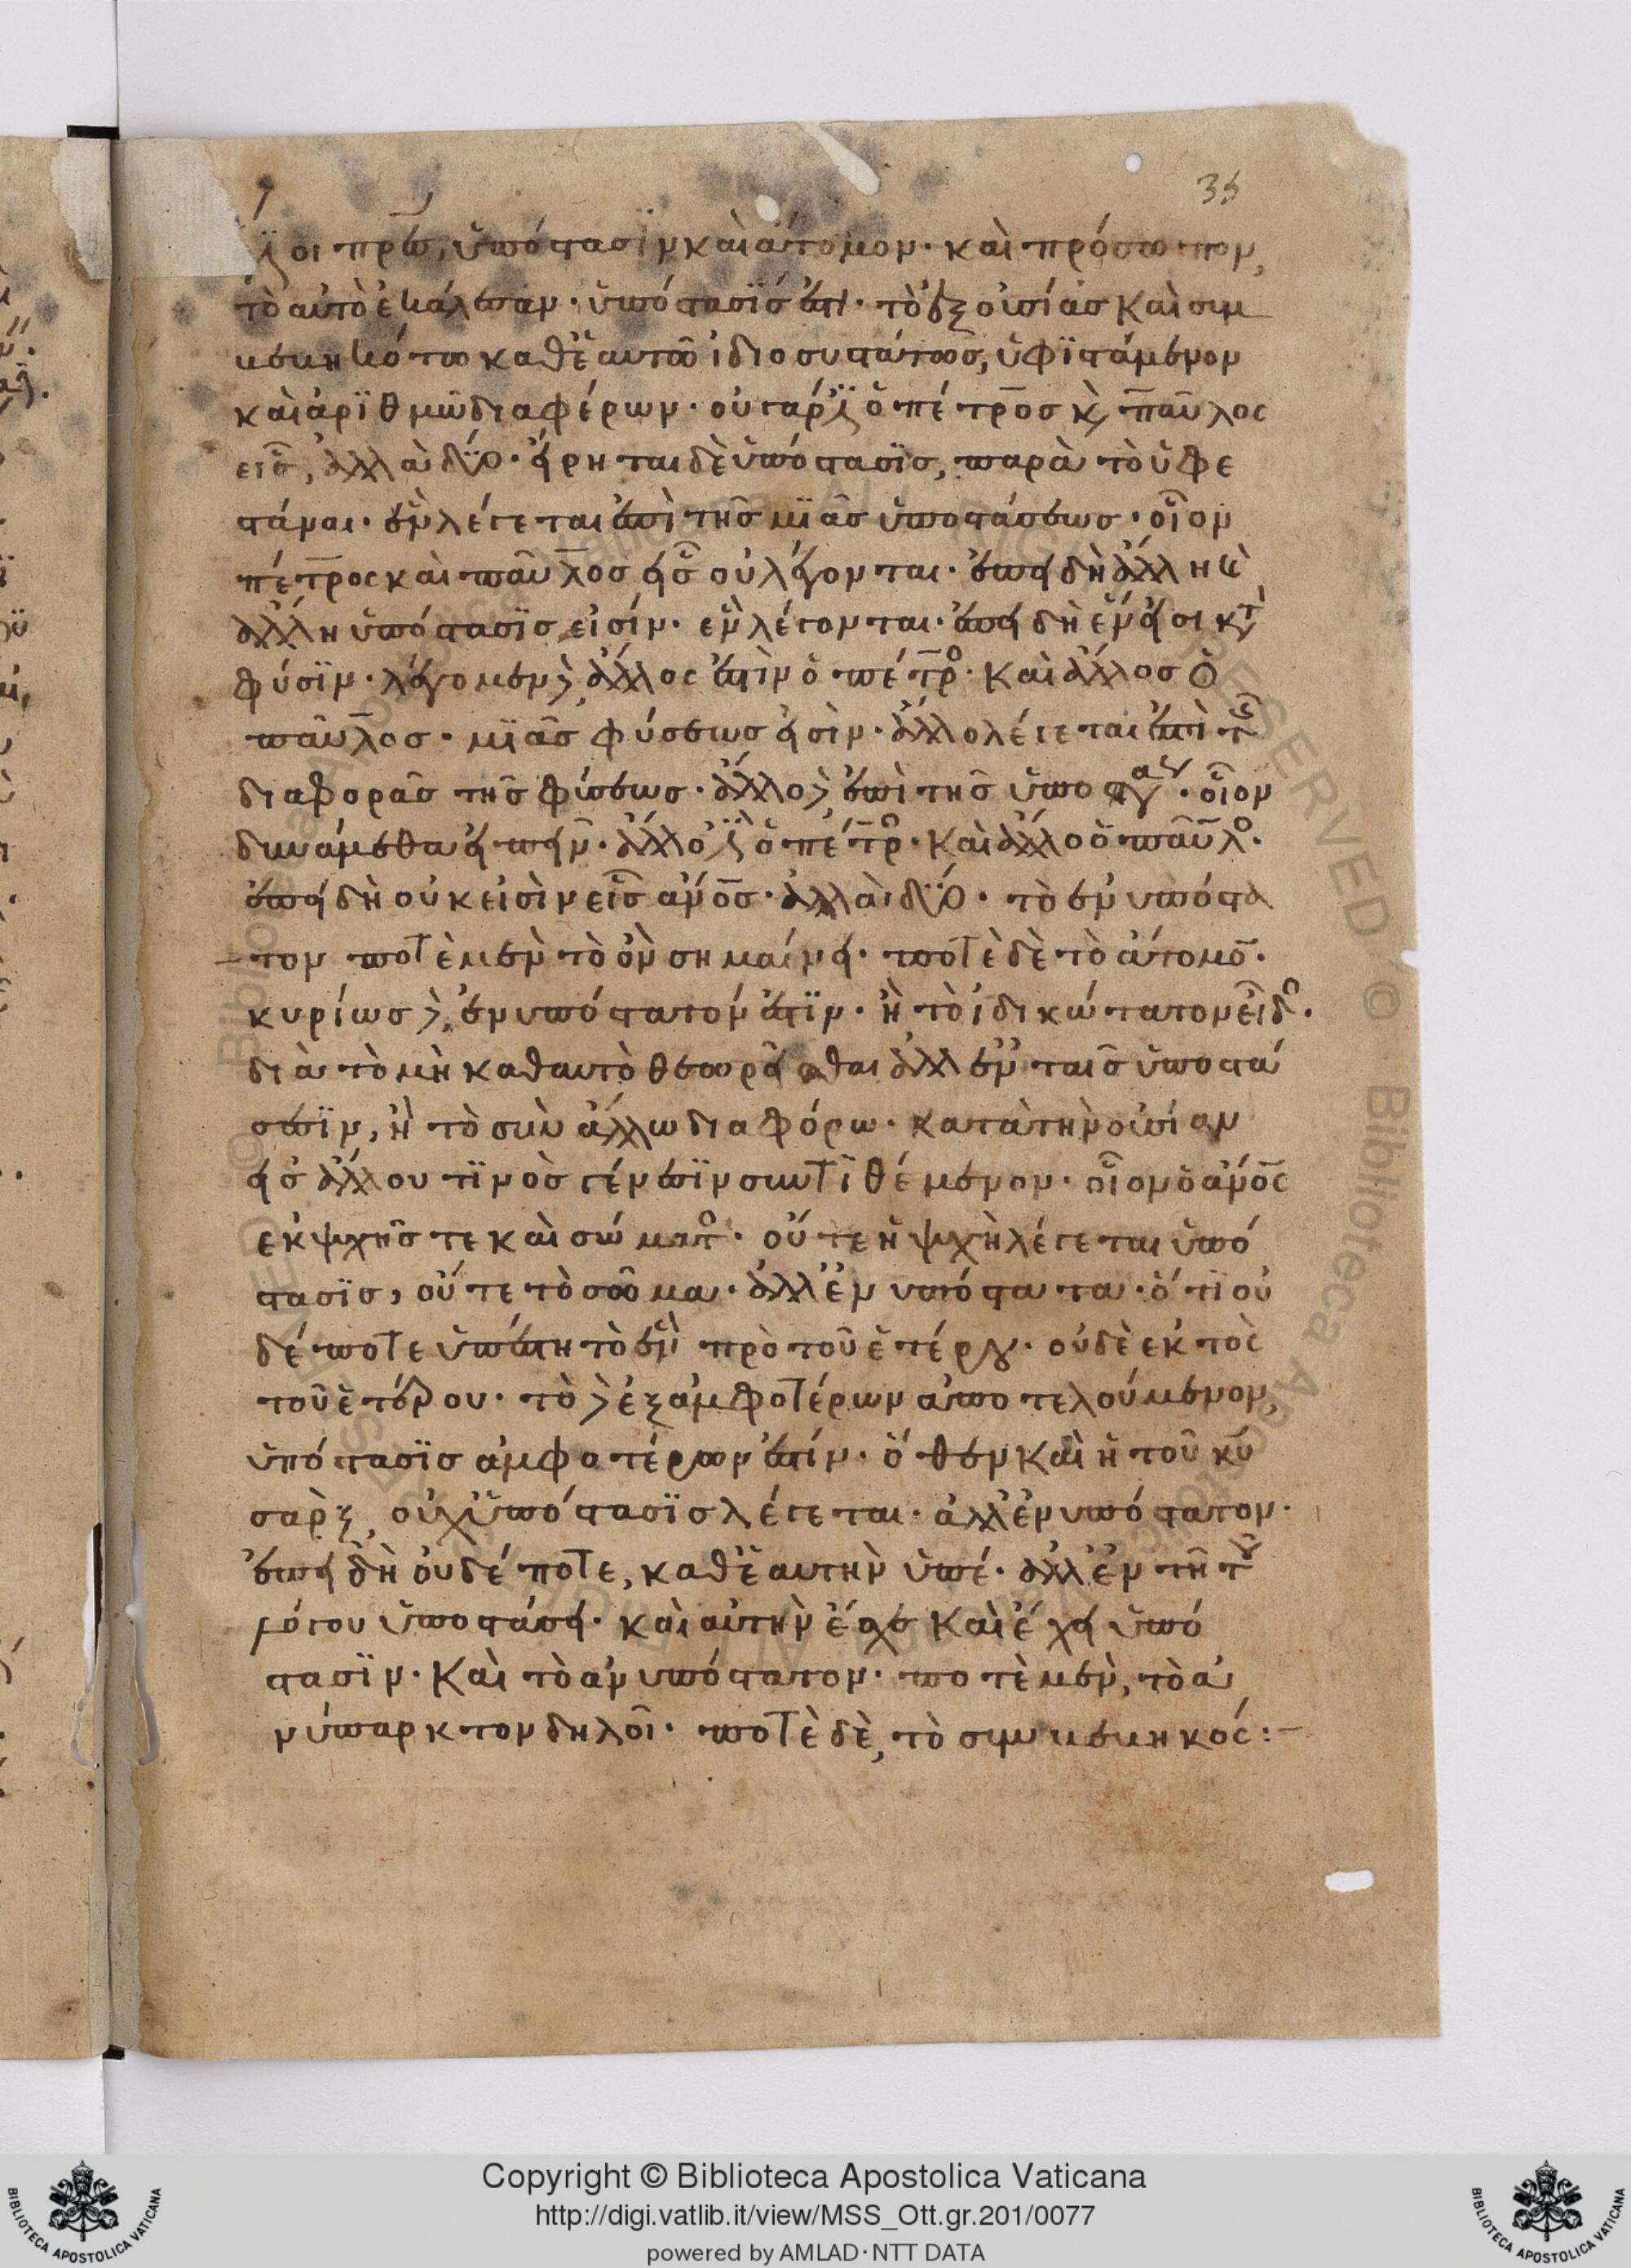 35
ὅτι οἱ πρ̅ε̅ς, ὑπόστασϊν καὶ ἄτομον· καὶ πρόσωπον,
τὸ αὐτὸ ἐκάλεσαν· ὑπόστασϊς ἐστὶ· τὸ ἐξ οὐσίας καὶ συμ
βεβηκότων καθ' ἑαυτὸ ἰδιοσυστάτως, ὑφϊστάμενον
καὶ ἀρϊθμῶ διαφέρων· οὐ γάρ ἐστιν ὁ πέτρος κ(αὶ) παῦλος
εἷς, ἀλλὰ δύο· εἴρηται δὲ ὑπόστασϊς, παρὰ τὸ ὑφε
στάναι· ἓν λέγεται ἐπὶ τῆς μϊᾶς ὑποστάσεως· οἷον
πέτρος καὶ παῦλος εἷς οὐ λέγονται· ἐπειδὴ ἄλλη κ(αὶ)
ἄλλη ὑπόστασϊς εἰσίν· ἓν λέγονται· ἐπειδὴ ἕν εἰσι κ(α)τ(ὰ)
φύσϊν· λέγομεν δὲ ἄλλος ἐστὶν ὁ πέτρο· καὶ ἄλλος ὁ
παῦλος· μϊᾶς φύσεως εἰσὶν· ἄλλο λέγεται ἐπὶ τῆς
διαφορᾶς τῆς φύσεως· ἄλλος δὲ ἐπὶ τῆς ὑποστά· οἷον
δυνάμεθα εἰπεῖν· ἄλλο ἐστὶν ὁ πέτρο· καὶ ἄλλο ὁ παῦλο·
ἐπειδὴ οὐκ εἰσὶν εἷς α̅ν̅ο̅ς· ἀλλὰ δύο· τὸ ἐνυπόστα
τον ποτὲ μὲν τὸ ὂν σημαίνει· ποτὲ δὲ τὸ ἄτομο̅·
κυρίως δὲ, ἐνυπόστατον ἐστϊν· ἢ τὸ ἰδικώτατον εἶδο·
διὰ τὸ μὴ καθαυτὸ θεωρεῖσθαι ἀλλ' ἐν ταῖς ὑποστά
σεσϊν, ἢ τὸ σὺν ἄλλω διαφόρω· κατὰ τὴν οὐσίαν
εἰς ἄλλου τϊνὸς γένεσϊν συντϊθέμενον· οἷον ὁ α̅ν̅ο̅ς
ἐκ ψυχῆς τε καὶ σώματο· οὔτε ἡ ψυχὴ λέγεται ὑπό
στασϊς, οὔτε τὸ σῶμα· ἀλλ' ἐνυπόστατα· ὅτι οὐ
δέποτε ὑπέστη τὸ ἓν πρὸ τοῦ ἑτέρου· οὐδὲ ἐκτὸς
τοῦ ἑτέρου· τὸ δὲ ἐξ ἀμφοτέρων ἀποτελούμενον,
ὑπόστασϊς ἀμφοτέρων ἐστίν· ὅθεν καὶ ἡ τοῦ κ̅υ̅
σὰρξ, οὐχ ὑπόστασϊς λέγεται· ἀλλ' ἐνυπόστατον·
ἐπειδὴ οὐδέποτε, καθ' ἑαυτὴν ὑπέ· ἀλλ' ἐν τῆ τοῦ
λόγου ὑποστάσει· καὶ αὐτὴν ἔσχε καὶ ἔχει ὑπό
στασϊν· καὶ τὸ ἀνυπόστατον· ποτὲ μὲν, τὸ ἀ
νύπαρκτον δηλοῖ· ποτὲ δὲ, τὸ συμβεβηκός:–
Copyright © Biblioteca Apostolica Vaticana
http://digi.vatlib.it/view/MSS_Ott.gr.201/0077
powered by AMLAD·NTT DATA